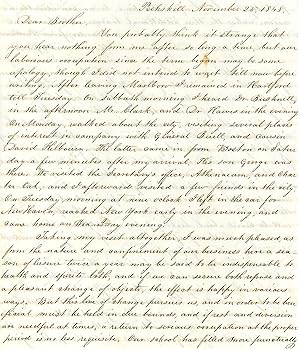 Peekskill November 25, 1848.
Dear Brother
You probably think it strange that
you hear nothing from me after so long a time, but our
laborious occupation since the term began may be some
apology, though I did not intend to wait till now before
writing. After leaving Marlboro I remained in Hartford
till Tuesday. On Sabbath morning I heard Dr Bushnell,
in the afternoon Mr. Clark, and Dr Hawes in the evening
On Monday, walked about the city, visiting several places
of interest in company with and cousin
David Kilbourn. The latter came in from Boston on Satur
day a few minutes after my arrival. His son George was
there. We visited the Secretary's office, Athenaeum, and Char
ter Oak, and I afterward visited a few friends in the city
On Tuesday morning at nine o'clock I left in the car for
New Haven, reached New York early in the evening, and
came home on Wednesday evening.
Taking my visit altogether, I was much pleased, as
from the nature and confinement of our business here a sea
son of leisure twice a year may be said to be indispensable to
health and spirits both, and if we can secure both repose and
a pleasant change of objects, the effect is happy in various
ways. But this love of change pursues us, and in order to be ben
eficial must be held in due bounds, and if rest and diversion
are needful at times, a return to serious occupation at the proper
period is no less requisite. Our school has filled more